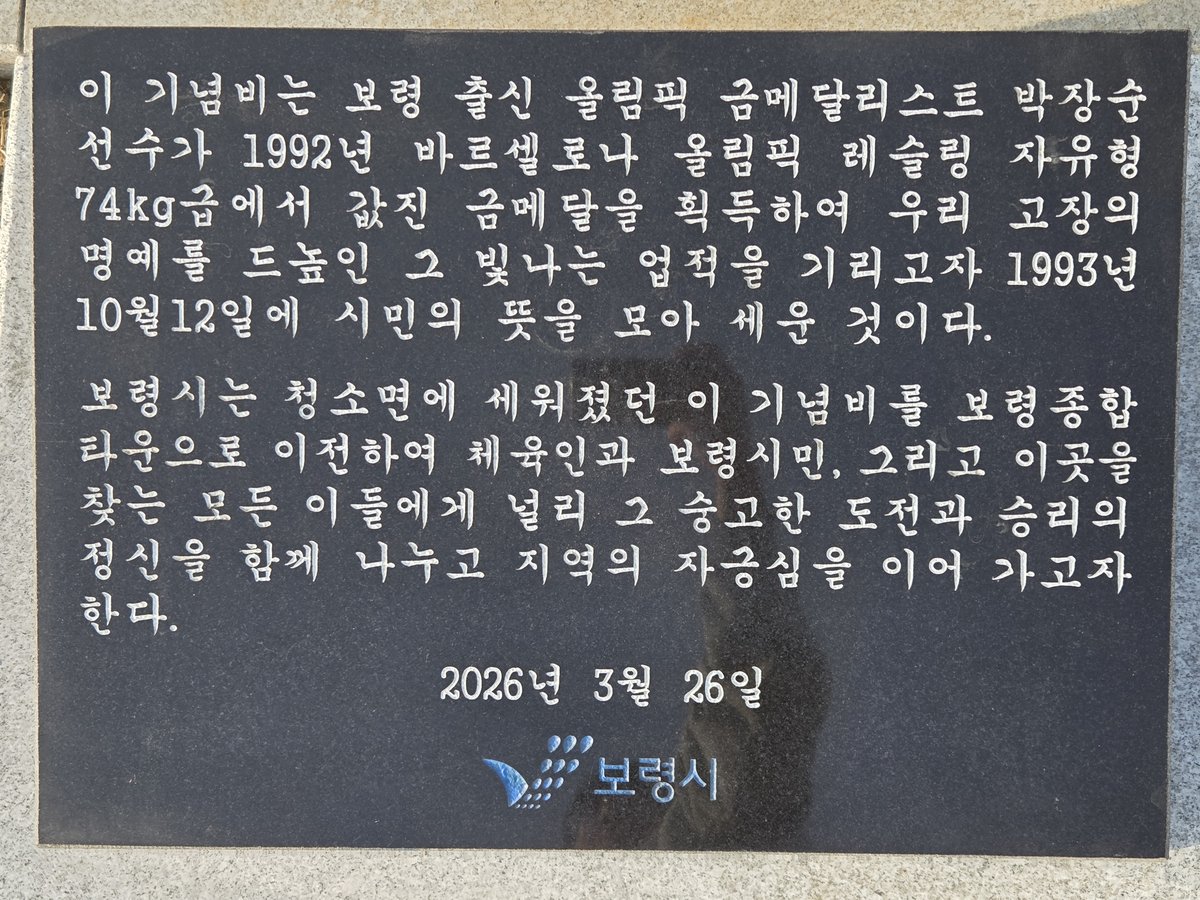 이 기념비는 보령 출신 올림픽 금메달리스트 박장순
선수가 1992년 바르셀로나 올림픽 레슬링 자유형
74kg급에서 값진 금메달을 획득하여 우리 고장의
명예를 드높인 그 빛나는 업적을 기리고자 1993년
10월12일에 시민의 뜻을 모아 세운 것이다.
보령시는 청소면에 세워졌던 이 기념비를 보령종합
타운으로 이전하여 체육인과 보령시민, 그리고 이곳을
찾는 모든 이들에게 널리 그 숭고한 도전과 승리의
정신을 함께 나누고 지역의 자긍심을 이어 가고자
한다.
2026년 3월 26일
보령시